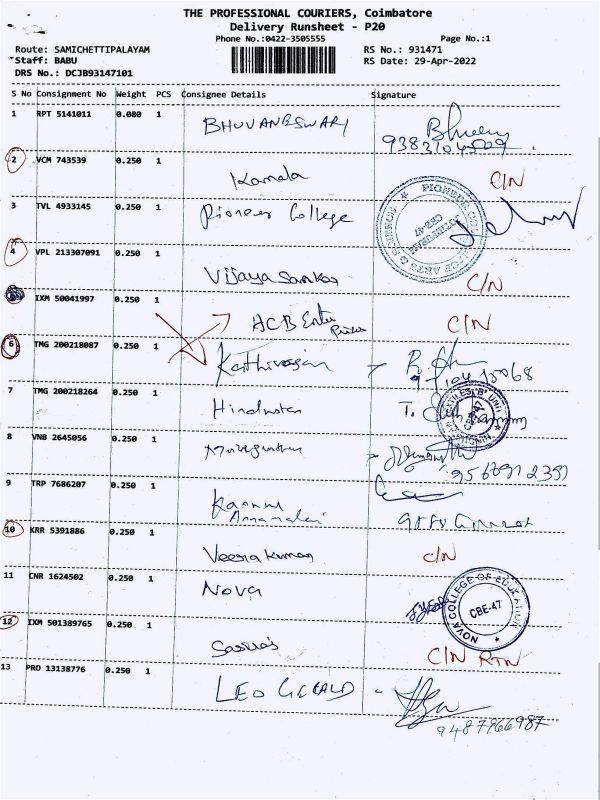 THE PROFESSIONAL COURIERS, Coimbatore
Delivery Runsheet - P20
Phone No.:0422-3505555 Page No.:1
Route: SAMICHETTIPALAYAM RS No.: 931471
Staff: BABU RS Date: 29-Apr-2022
DRS No.: DCJB93147101
S No Consignment No Weight PCS Consignee Details Signature
1 RPT 5141011 0.080 1
BHUVANESWARI
2 VCM 743539 0.250 1
Kamala C/N
3 TVL 4933145 0.250 1
Pioneer College
4 VPL 213307091 0.250 1
Vijaya Sankar C/N
IXM 50041997 0.250 1
ACB Enter
Prises C/N
6 TMG 200218087 0.250 1
Karthirasan
7 TMG 200218264 0.250 1
Hindustan T.
8 VNB 2645056 0.250 1
9 TRP 7686207 0.250 1
Annamalai
10 KRR 5391886 0.250 1
Veerakumar C/N
11 CNR 1624502 0.250 1
Nova
NOVA COLLEGE OF EDUCATION
CBE-47
12 IXM 501389765 0.250 1
C/N RTN
13 PRO 13138776 0.250 1
LEO GERALD -
9487966987